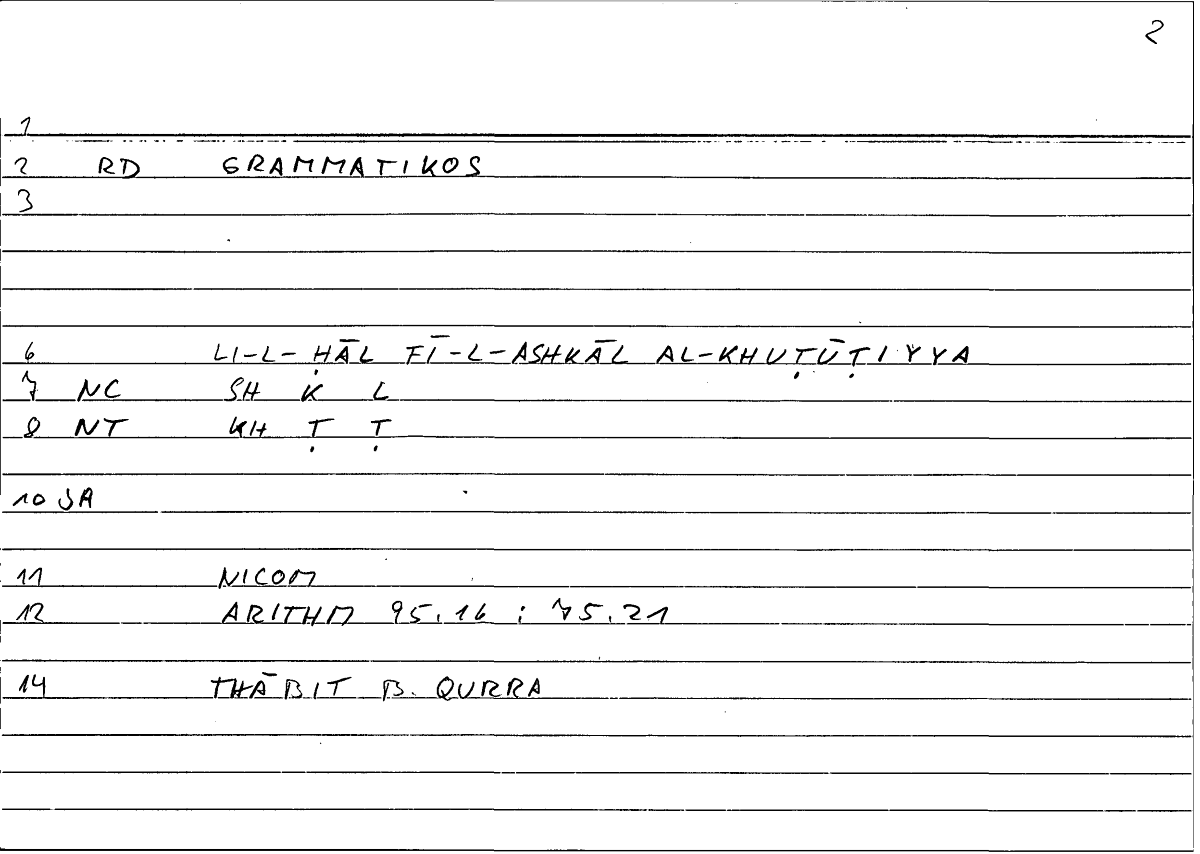 2
1
2 RD GRAMMATIKOS
3
6 LI-L-ḤĀL FĪ-L-ASHKĀL AL-KHUṬŪṬIYYA
7 NC SH K L
8 NT KH Ṭ Ṭ
10 JA
11 NICOM
12 ARITHM 95.16 : 75.21
14 THĀBIT B. QURRA